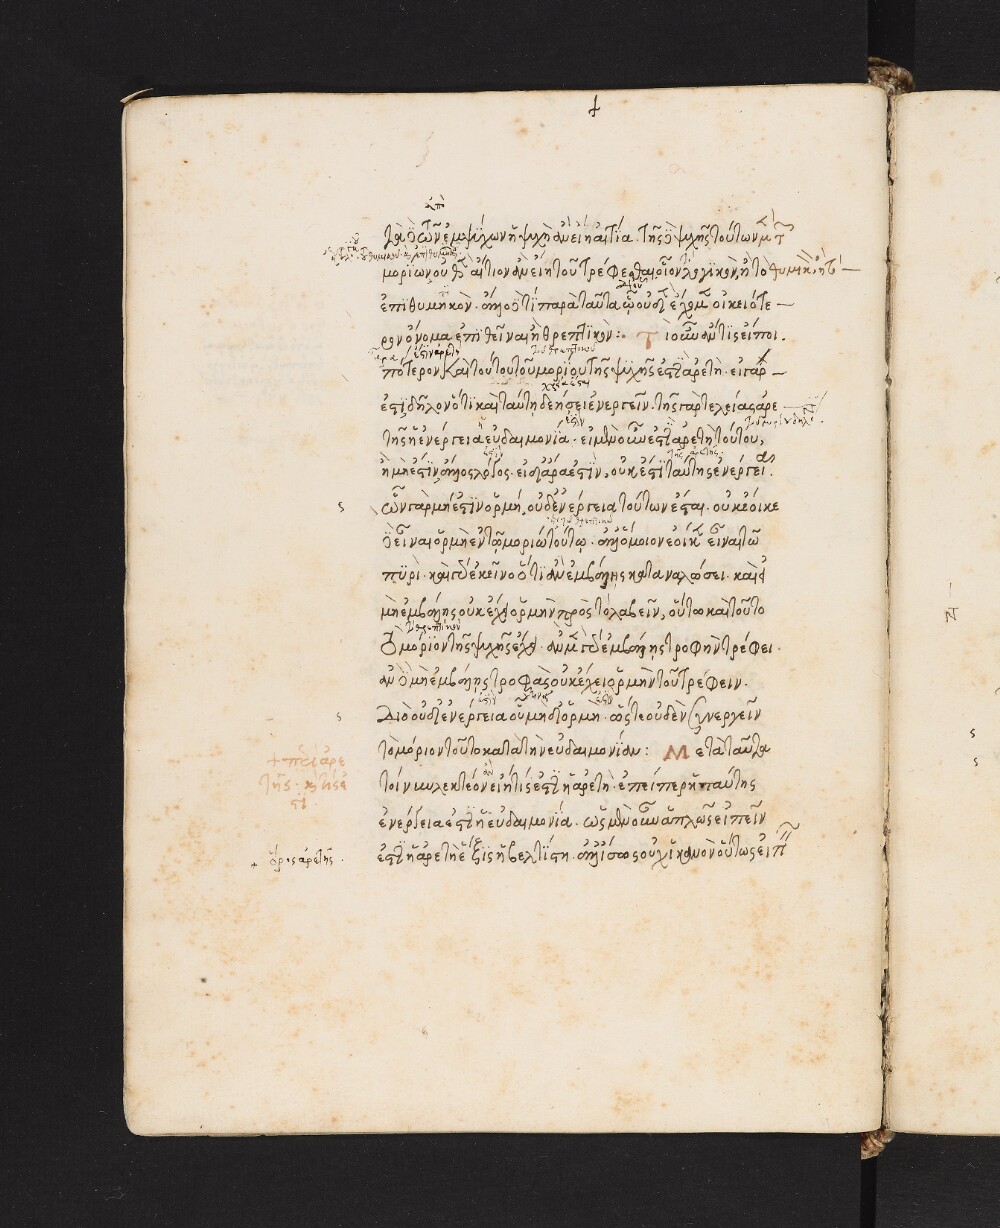 τῶν δ' ἐμψύχων ἡ ψυχὴ ἂν εἴη αἰτία. τῆς δὲ ψυχῆς τούτων
μορίων οὐθὲν αἴτιον ἂν εἴη τοῦ τρέφεσθαι οἷον λογικὸν, ἢ τὸ θυμικὸν, ἢ τὸ
ἐπιθυμητικὸν. ἀλλ' ὅτι παρὰ ταῦτα ᾧ οὐθὲν ἔχομεν οἰκειότε
ρον ὄνομα ἐπιθεῖναι ἢ θρεπτικόν: Τί οὖν ἄν τις εἴποι.
πότερον καὶ τούτου τοῦ μορίου τῆς ψυχῆς ἐστὶν ἀρετή. εἰ γὰρ
ἐστὶ δῆλον ὅτι καὶ ταύτῃ δεήσει ἐνεργεῖν. τῆς γὰρ τελείας ἀρε
τῆς ἡ ἐνέργεια εὐδαιμονία. εἰ μὲν οὖν ἐστὶν ἀρετὴ τούτου,
ἢ μὴ ἐστὶν ἄλλος λόγος. εἰ δ' ἄρα ἐστὶν, οὐκ ἔστι ταύτης ἐνέργεια.
ὧν γὰρ μή ἐστιν ὁρμή, οὐδ' ἐνέργεια τούτων ἔσται. οὐκ ἔοικε
δὲ εἶναι ὁρμὴ ἐν τῷ μορίῳ τούτῳ. ἀλλ' ὅμοιον ἔοικεν εἶναι τῷ
πυρί. καὶ γὰρ ἐκεῖνο ὅτι ἂν ἐμβάλῃς καταναλώσει. καὶ ἂν
μὴ ἐμβάλῃς οὐκ ἔχει ὁρμὴν πρὸς τὸ λαβεῖν, οὕτω καὶ τοῦτο
τὸ μόριον τῆς ψυχῆς ἔχει. ἂν μὲν γὰρ ἐμβάλῃς τροφὴν τρέφει.
ἂν δὲ μὴ ἐμβάλῃς τροφὰς οὐκ ἔχει ὁρμὴν τοῦ τρέφειν.
Διὸ οὐδὲ ἐνέργεια οὗ μηδὲ ὁρμή. ὥστε οὐδὲν συνεργεῖν
τὸ μόριον τοῦτο κατὰ τὴν εὐδαιμονίαν: Μετὰ ταῦτα
τοίνυν λεκτέον ἂν εἴη τίς ἐστὶν ἡ ἀρετή. ἐπείπερ ἡ ταύτης
ἐνέργεια ἐστὶν ἡ εὐδαιμονία. ὡς μὲν οὖν ἁπλῶς εἰπεῖν
ἐστὶν ἡ ἀρετὴ ἕξις ἡ βελτίστη. ἀλλ' ἴσως οὐχ ἱκανὸν οὕτως εἰπεῖν
+ περὶ ἀρε
τῆς. καὶ τίς ἐ
στι.
+ ὅρος ἀρετῆς.